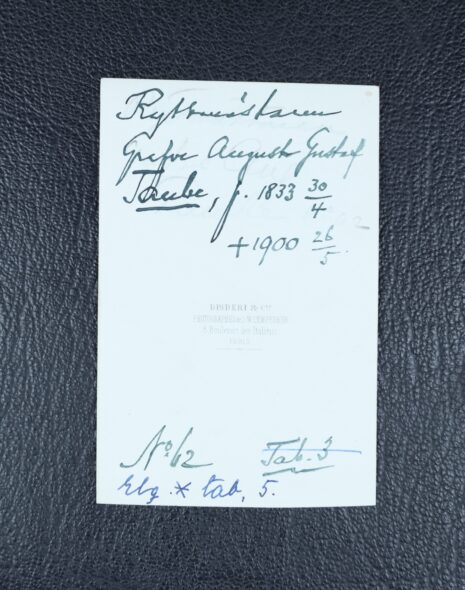 Ryttmästaren
Grefve August Gustaf
Taube, f. 1833 30/4
+ 1900 26/5.
DISDERI & Cie
PHOTOGRAPHES de S.M. L'EMPEREUR
8, Boulevart des Italiens
PARIS
No. 62 Tab. 3
Elg. * tab. 5.